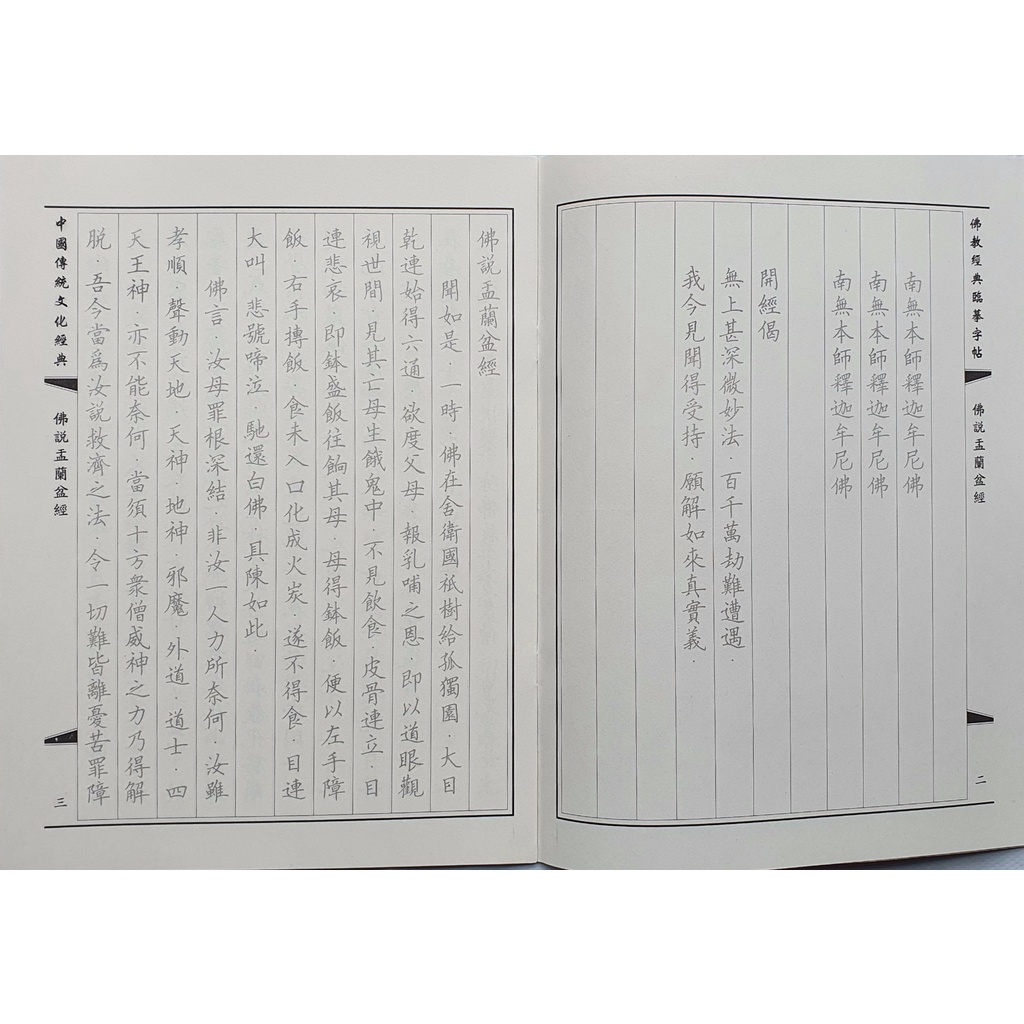 佛教經典臨摹字帖
佛說盂蘭盆經
二
南無本師釋迦牟尼佛
南無本師釋迦牟尼佛
南無本師釋迦牟尼佛
開經偈
無上甚深微妙法．百千萬劫難遭遇．
我今見聞得受持．願解如來真實義．
佛說盂蘭盆經
聞如是．一時．佛在舍衛國祇樹給孤獨園．大目
乾連始得六通．欲度父母．報乳哺之恩．即以道眼觀
視世間．見其亡母生餓鬼中．不見飲食．皮骨連立．目
連悲哀．即鉢盛飯往餉其母．母得鉢飯．便以左手障
飯．右手摶飯．食未入口化成火炭．遂不得食．目連
大叫．悲號啼泣．馳還白佛．具陳如此．
佛言．汝母罪根深結．非汝一人力所奈何．汝雖
孝順．聲動天地．天神．地神．邪魔．外道．道士．四
天王神．亦不能奈何．當須十方衆僧威神之力乃得解
脫．吾今當爲汝說救濟之法．令一切難皆離憂苦罪障
中國傳統文化經典
佛說盂蘭盆經
三